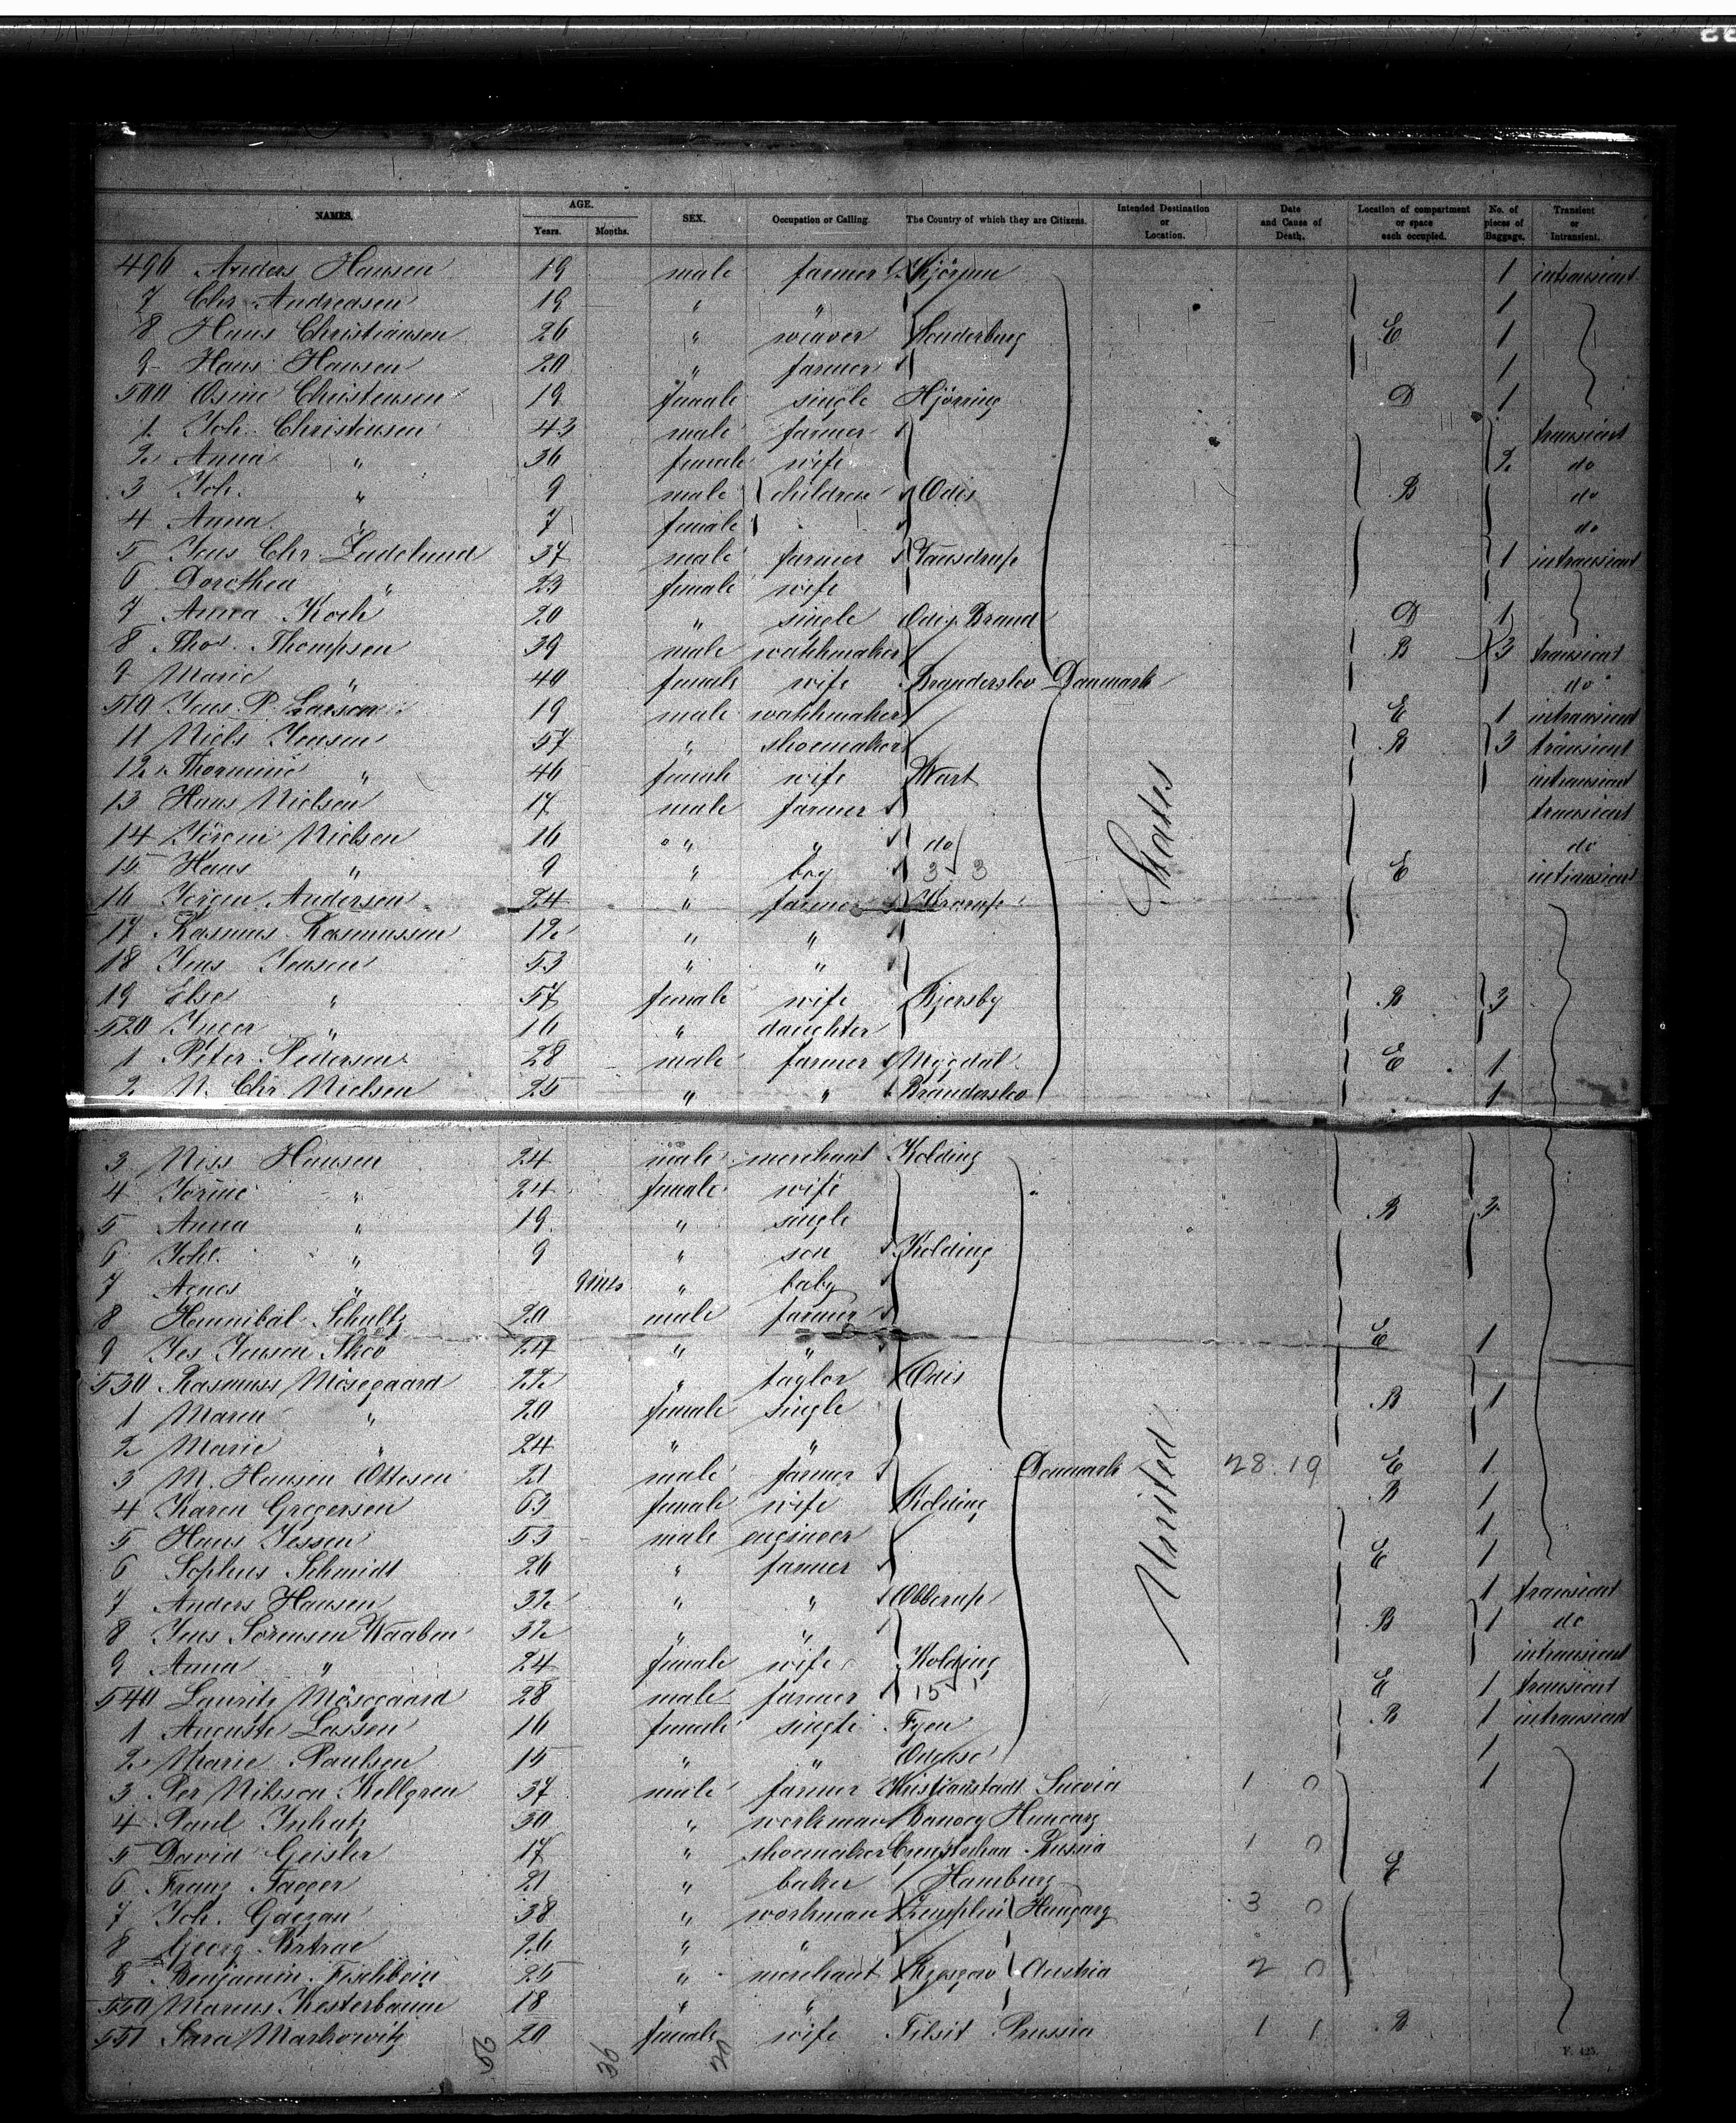 NAMES. AGE. Years. Months. SEX. Occupation or Calling. The Country of which they are Citizens. Intended Destination or Location. Date and Cause of Death. Location of compartment or space each occupied. No. of pieces of Baggage. Transient or Intransient.
496 Anders Hansen 19 male farmer 1 intransient
7 Chr. Andreasen 19 " " 1
8 Hans Christiansen 26 " weaver Sonderburg E 1
9 Hans Hansen 20 " farmer 1
500 Osine Christensen 19 female single Hjörring D 1
1 Joh. Christensen 43 male farmer transient
2 Anna " 36 female wife 2 do
3 Joh. " 9 male children Odis B do
4 Anna " 7 female do
5 Jens Chr. Ladelund 37 male farmer Vansdrup 1 intransient
6 Dorothea " 23 female wife
7 Anna Koch 20 " single Odis Brand D 1
8 Thos. Thompsen 39 male watchmaker B 3 transient
9 Marie " 40 female wife Branderslev Danmark do
510 Jens P. Larsen 19 male watchmaker E 1 intransient
11 Niels Jensen 57 " shoemaker B 3 transient
12 Thormine " 46 female wife Wart intransient
13 Hans Nielsen 17 male farmer transient
14 Nielsen 16 " " do do
15 Hans " 9 " boy 3 3 E intransient
16 Jörgen Andersen 24 " farmer
States
17 Rasmus Rasmussen 12 " "
18 Jens Jensen 53 " "
19 Else " 57 female wife Bjersby B 3
520 Inger " 16 " daughter
1 Peter Pedersen 28 male farmer Mygdal E 1
2 N. Chr. Nielsen 25 " " Branderslev 1
3 Niss Hansen 24 male merchant Kolding
4 Jorine " 24 female wife B 3
5 Anna " 19 " single
6 Joh. " 9 " son Kolding
7 Agnes " 9 mts " baby
8 Hannibal Schultz 20 male farmer
9 Jes Jensen Skov 24 " " E 1
530 Rasmuss Mösegaard 22 " taylor Odis
1 Maren " 20 female single B 1
2 Marie " 24 " "
3 M. Hansen Ottosen 21 male farmer Danmark 28 19 E 1
4 Karen Gregersen 63 female wife Kolding B 1
5 Hans Jessen 53 male engineer 1
6 Sophus Schmidt 26 " farmer E 1
United
7 Anders Hansen 32 " " Obberup 1 transient
8 Jens Sörensen Kaaben 32 " " B 1 do
9 Anna " 24 female wife Kolding intransient
540 Lauritz Mösegaard 28 male farmer 15 1 E 1 transient
1 Auguste Lassen 16 female single Fyen B 1 intransient
2 Marie Paulsen 15 " " Odense 1
3 Per Nilsson Kellgren 37 male farmer Christianstadt Suevia 1 0 1
4 Paul 30 " workman Hungary
5 David Geisler 17 " shoemaker Russia 1 0
6 Franz Jäger 21 " baker Hamburg E
7 Joh. 38 " workman Zemplin Hungary 3 0
8 Georg 26 " "
9 Benjamin Fischbein 25 " merchant Austria 2 0
550 Marcus Kesterbaum 18 " "
551 Sara Markowitz 20 female wife Tilsit Prussia 1 1 B
F. 425.